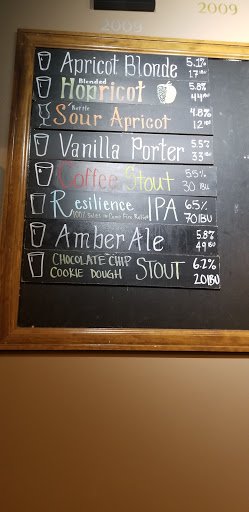 2009
2009
Apricot Blonde 5.1%
17 IBU
Blended
Hopricot 5.8%
44 IBU
Kettle
Sour Apricot 4.8%
12 IBU
Vanilla Porter 5.5%
33 IBU
Coffee Stout 5.5%
30 IBU
Resilience IPA 6.5%
100% Sales to Camp Fire Relief 70 IBU
Amber Ale 5.8%
49 IBU
CHOCOLATE CHIP
COOKIE DOUGH STOUT 6.2%
20 IBU